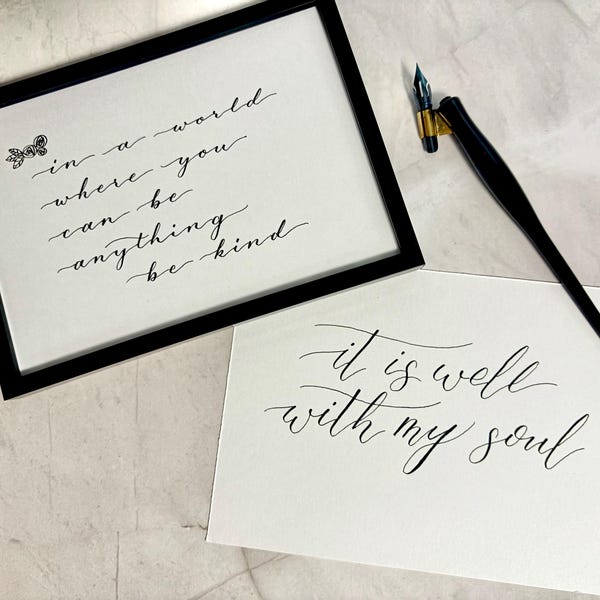 in a world
where you
can be
anything
be kind
it is well
with my soul